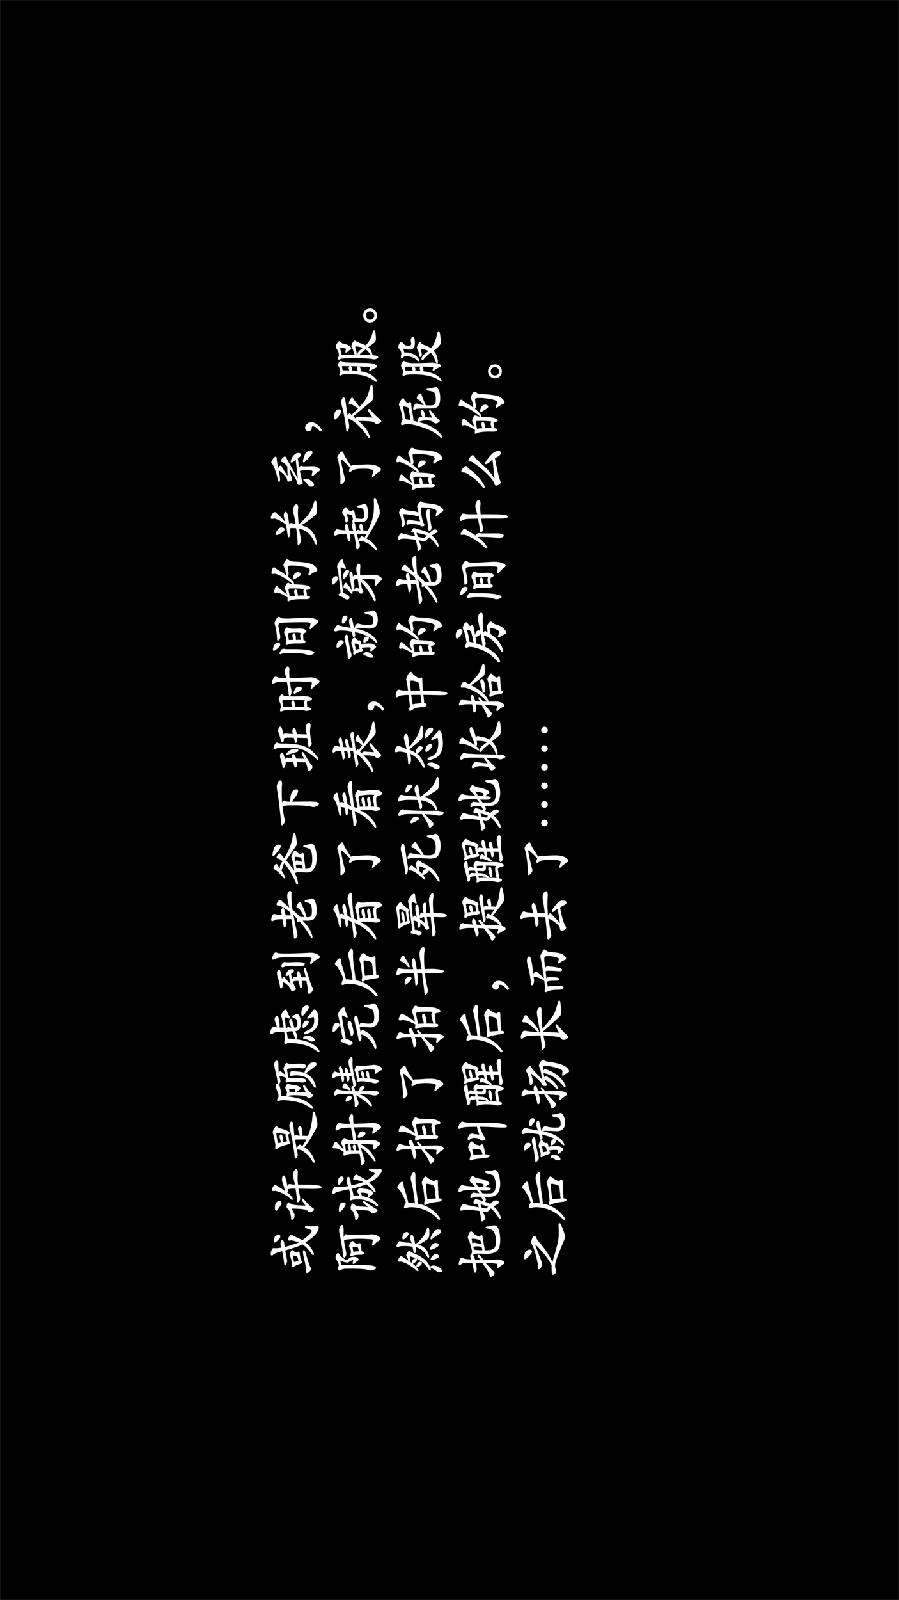 或许是顾虑到老爸下班时间的关系，
阿诚射精完后看了看表，就穿起了衣服。
然后拍了拍半晕死状态中的老妈的屁股
把她叫醒后，提醒她收拾房间什么的。
之后就扬长而去了……